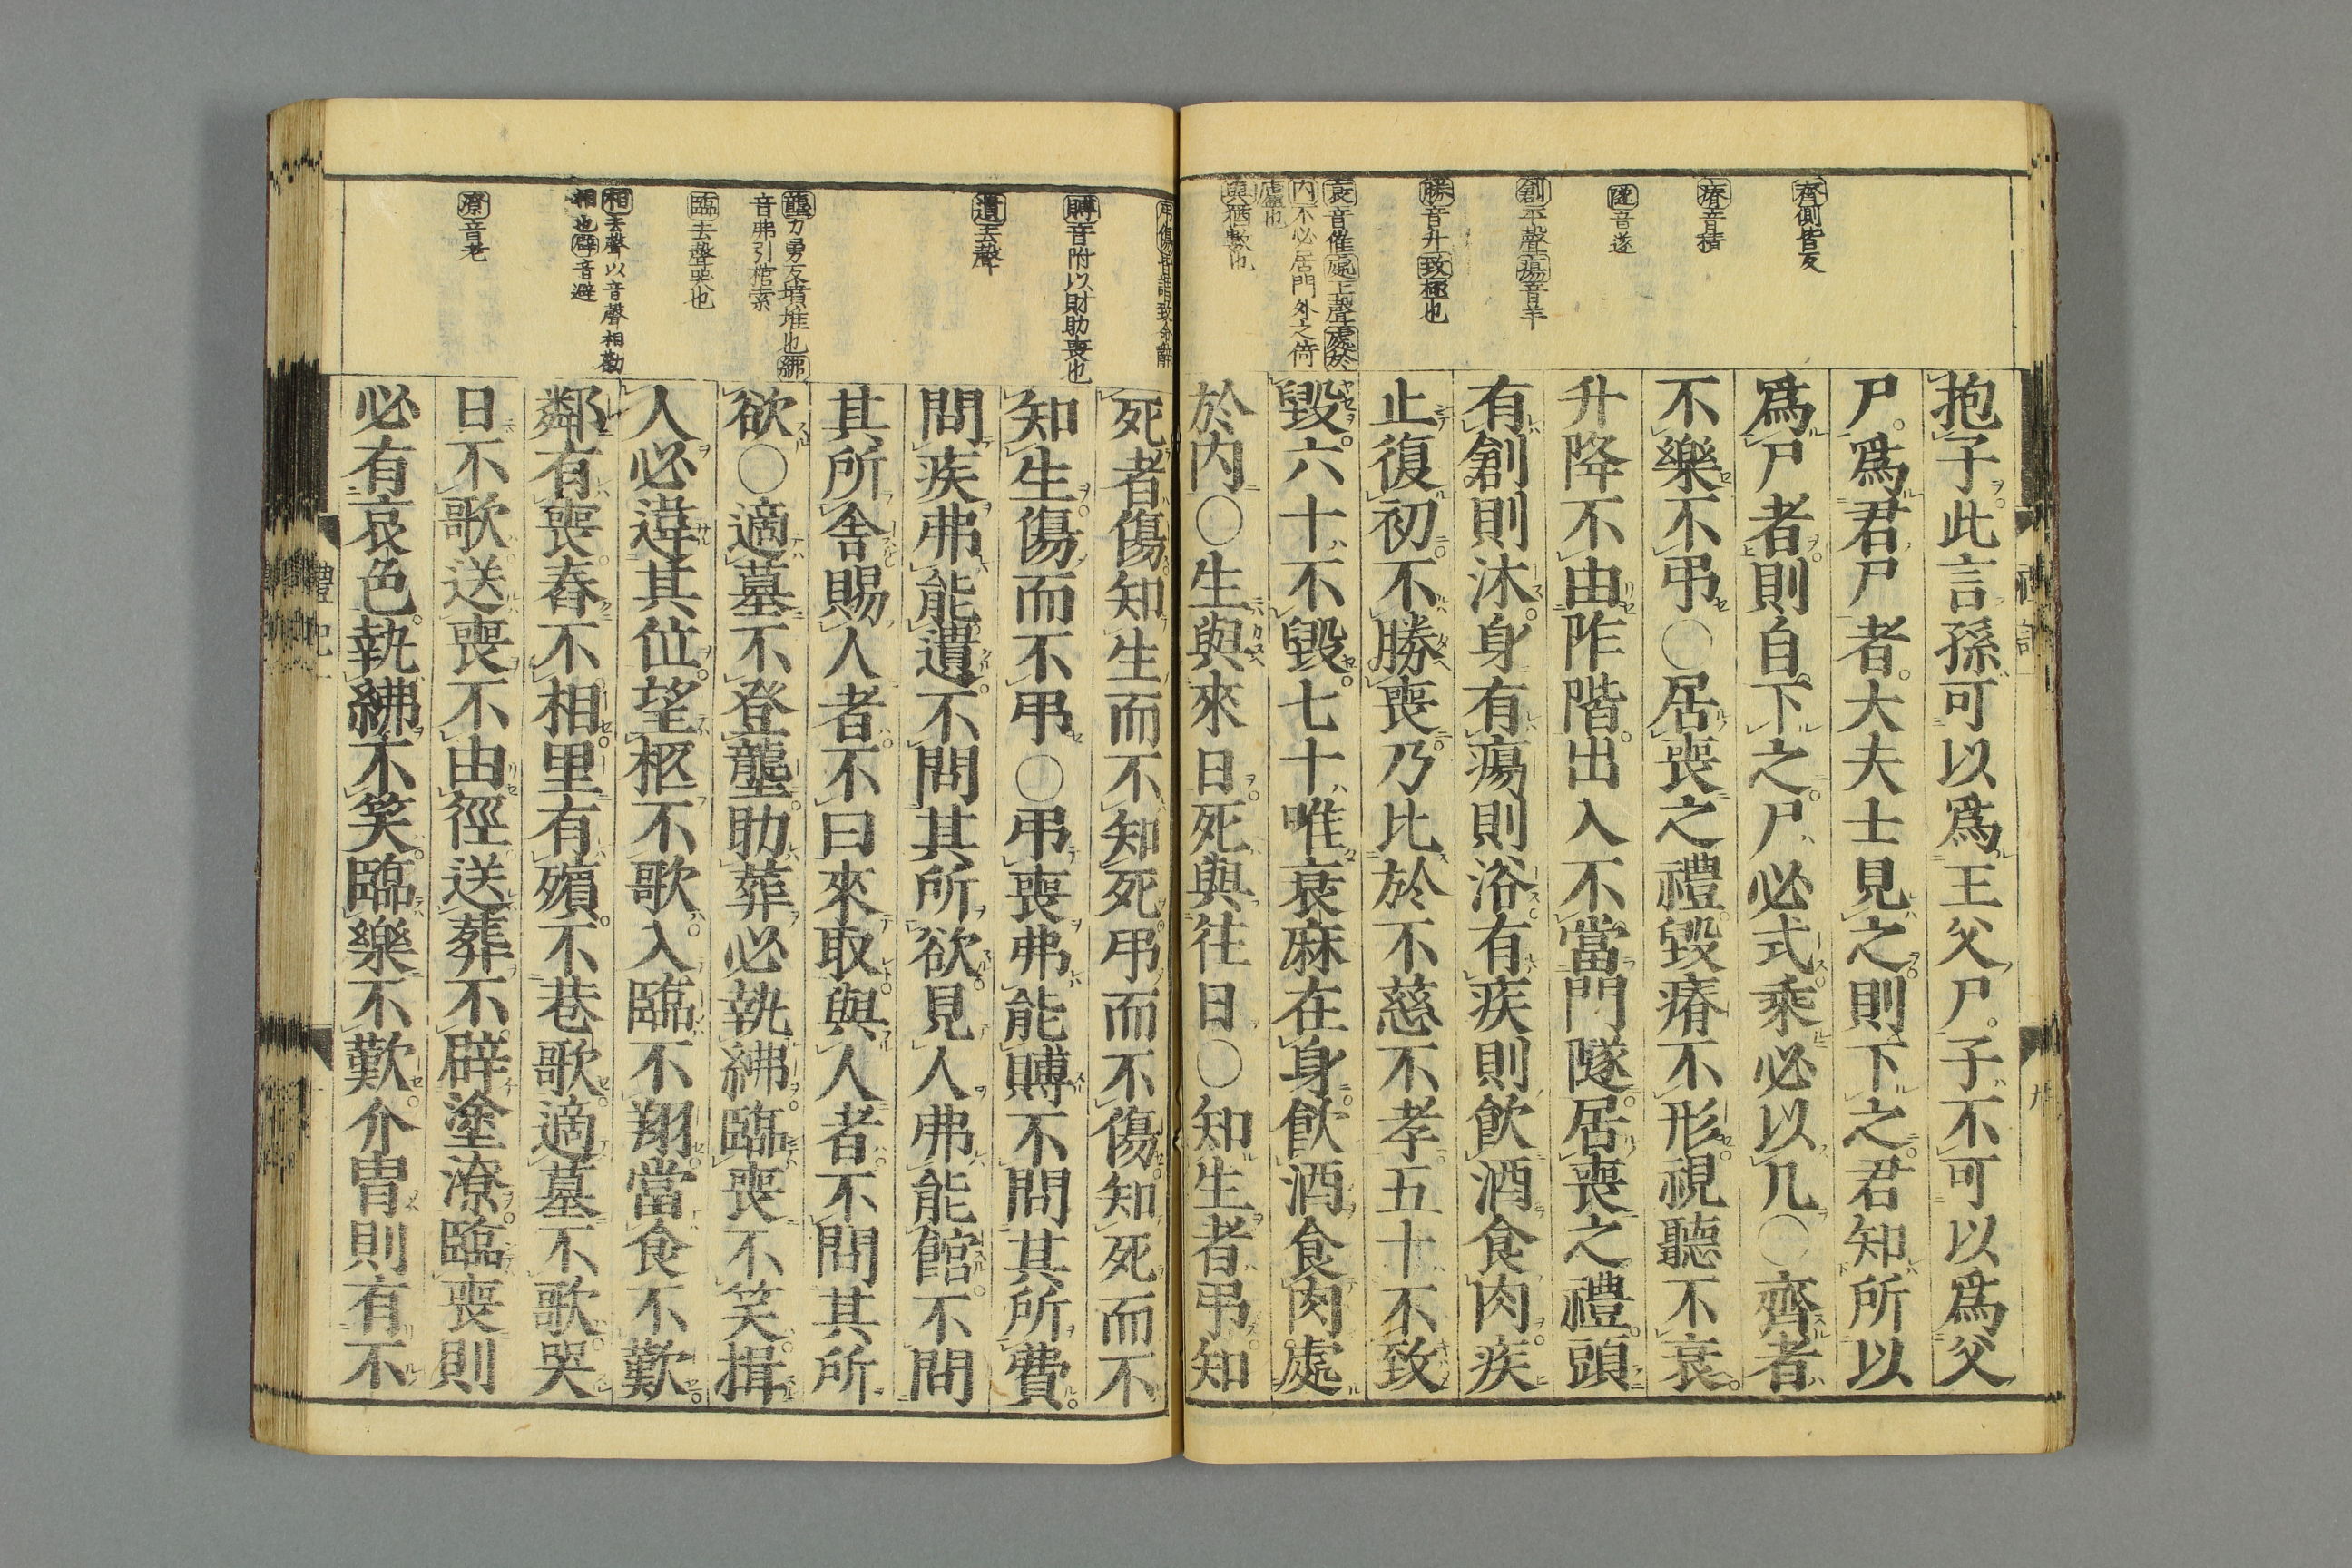 齊側皆反
瘠音積
隧音遂
創平聲瘍音羊
勝音升致極也
衰音催處上聲處於
內不必居門外之倚
廬也
與猶數也
抱子此言孫可以爲王父尸子不可以爲父
尸爲君尸者大夫士見之則下之君知所以
爲尸者則自下之尸必式乘必以几○齊者
不樂不弔○居喪之禮毀瘠不形視聽不衰
升降不由阼階出入不當門隧居喪之禮頭
有創則沐身有瘍則浴有疾則飲酒食肉疾
止復初不勝喪乃比於不慈不孝五十不致
毀六十不毀七十唯衰麻在身飲酒食肉處
於內○生與來日死與往日○知生者弔知
賻音附以財助喪也
遺去聲
壟力勇反墳堆也紼
音弗引棺索
臨去聲哭也
相去聲以音聲相勸
相也辟音避
潦音老
死者傷知生而不知死弔而不傷知死而不
知生傷而不弔○弔喪弗能賻不問其所費
問疾弗能遺不問其所欲見人弗能館不問
其所舍賜人者不曰來取與人者不問其所
欲○適墓不登壟助葬必執紼臨喪不笑揖
人必違其位望柩不歌入臨不翔當食不歎
鄰有喪舂不相里有殯不巷歌適墓不歌哭
日不歌送喪不由徑送葬不辟塗潦臨喪則
必有哀色執紼不笑臨樂不歎介冑則有不
禮記